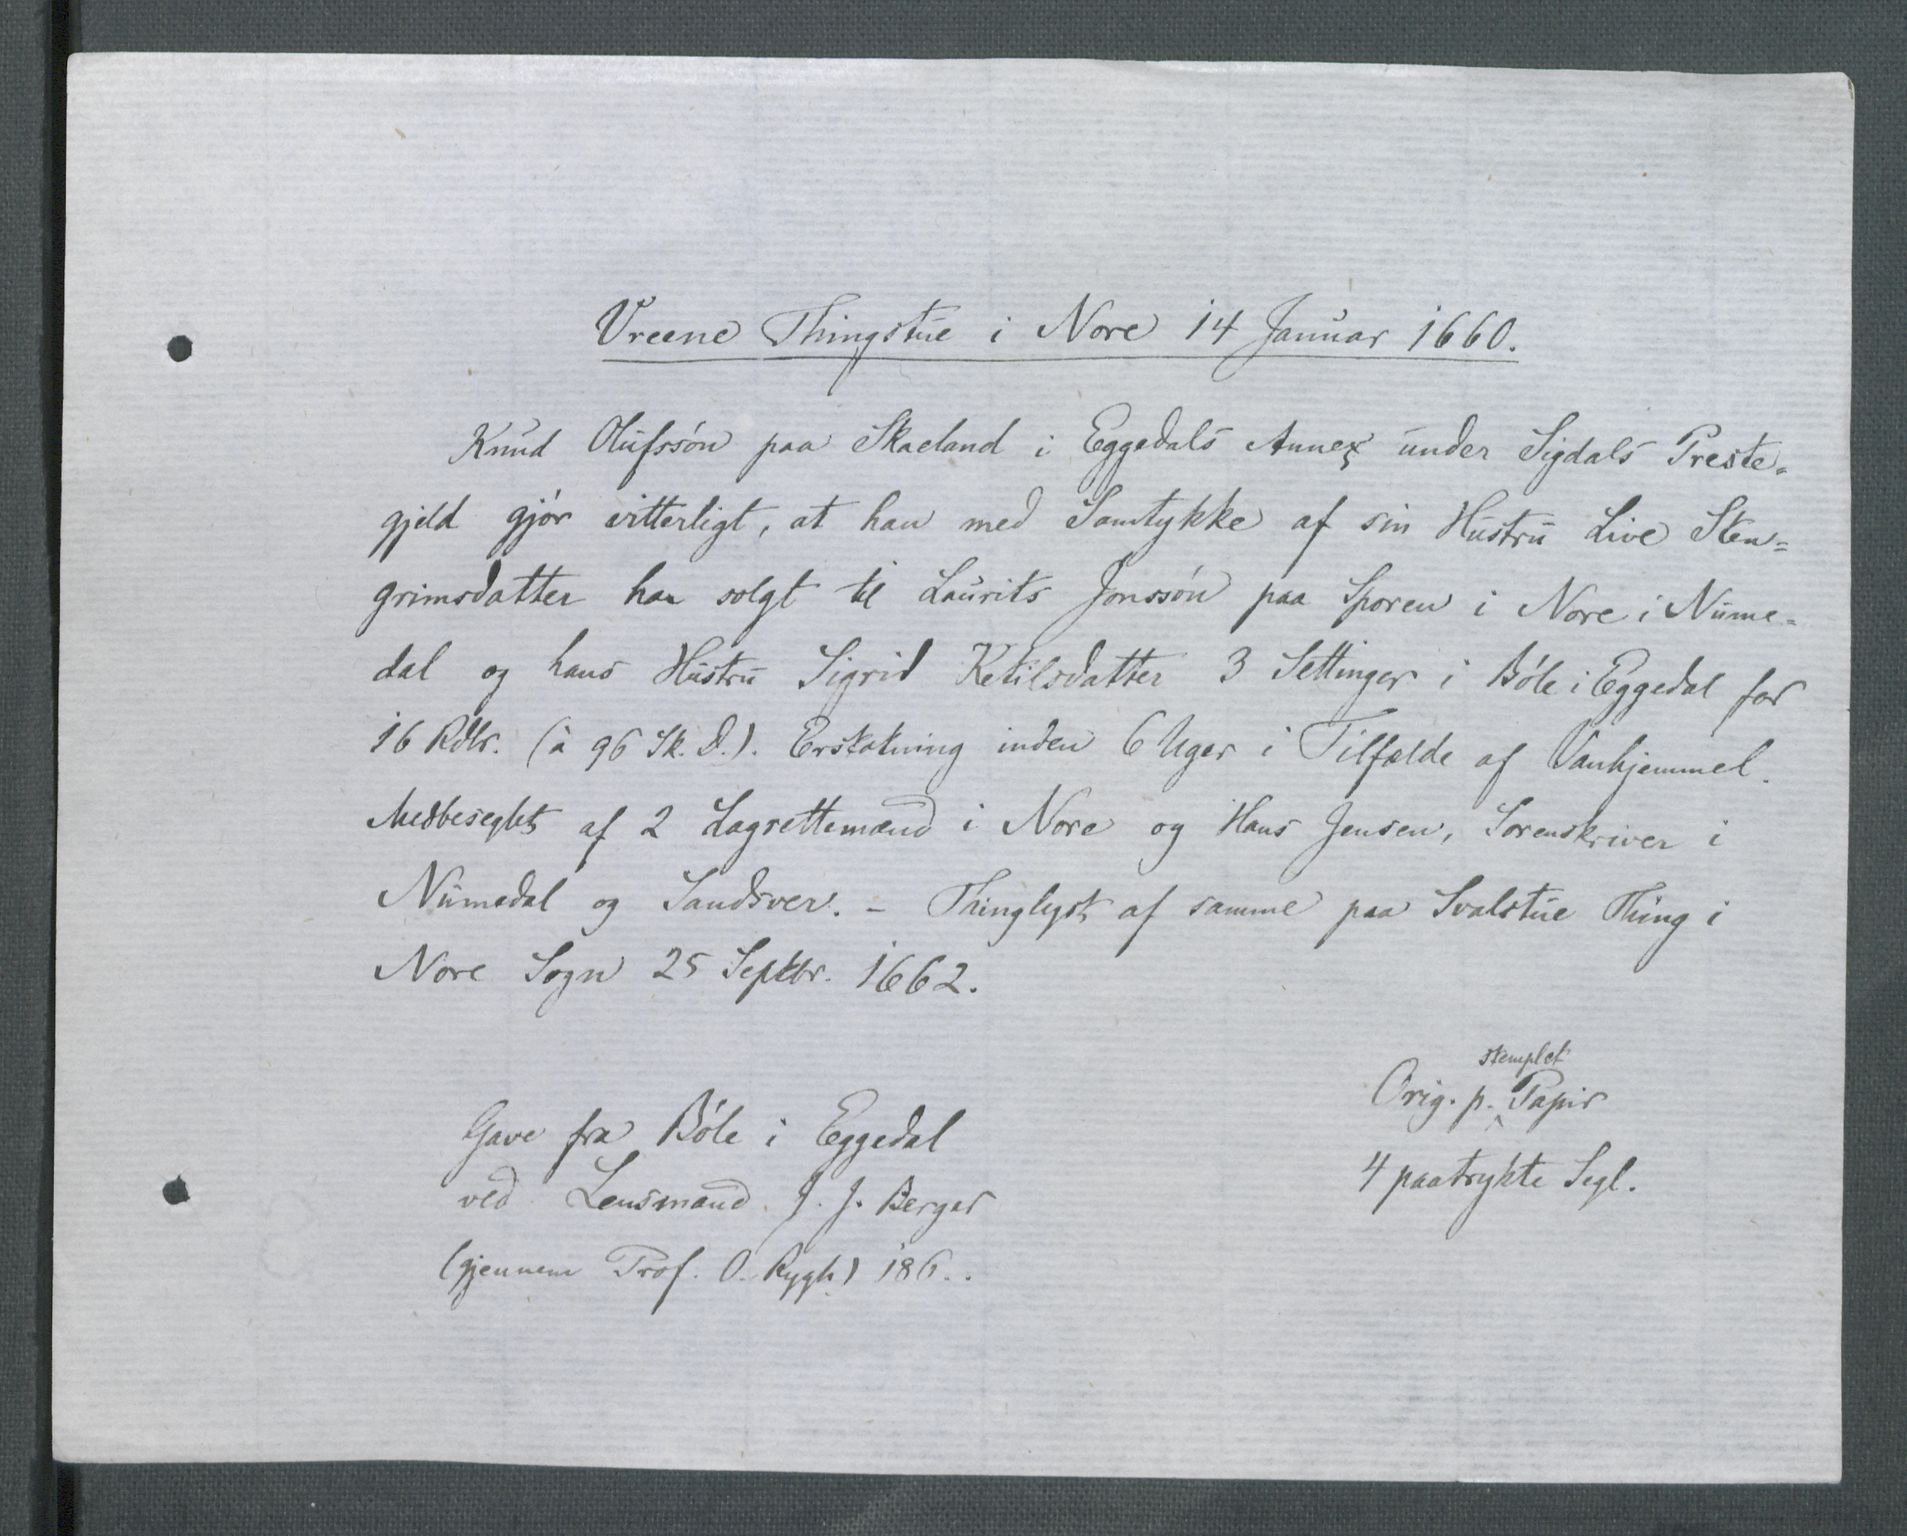 Vreene Thingstue i Nore 14 Januar 1660.
Knud Olufssøn paa Skaeland i Eggedals Annex under Sigdals Preste-
gjeld gjør vitterligt, at han med Samtykke af sin Hustru Live Sten-
grimsdatter har solgt til Laurits Jonssøn paa Sporen i Nore i Nume-
dal og hans Hustru Sigrid Ketilsdatter 3 Settinger i Bøle i Eggedal for
16 Rdlr. (à 96 Sk. D.). Erstatning inden 6 Uger i Tilfælde af Vanhjemmel.
Medbeseglet af 2 Lagrettemænd i Nore og Hans Jensen, Sorenskriver i
Numedal og Sandsver. – Thinglyst af samme paa Svalstue Thing i
Nore Sogn 25 Septbr. 1662.
stemplet
Orig. p. Papir
4 paatrykte Segl.
Gave fra Bøle i Eggedal
ved Lensmand J. J. Berger
(gjennem Prof. O. Rygh) 186..